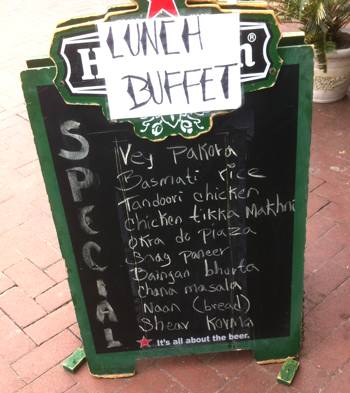 LUNCH
BUFFET
SPECIAL
Veg Pakora
Basmati rice
Tandoori chicken
chicken tikka Makhni
okra do piaza
Saag paneer
Daingan bhurta
chana masala
Naan (bread)
Shear Korma
It's all about the beer.